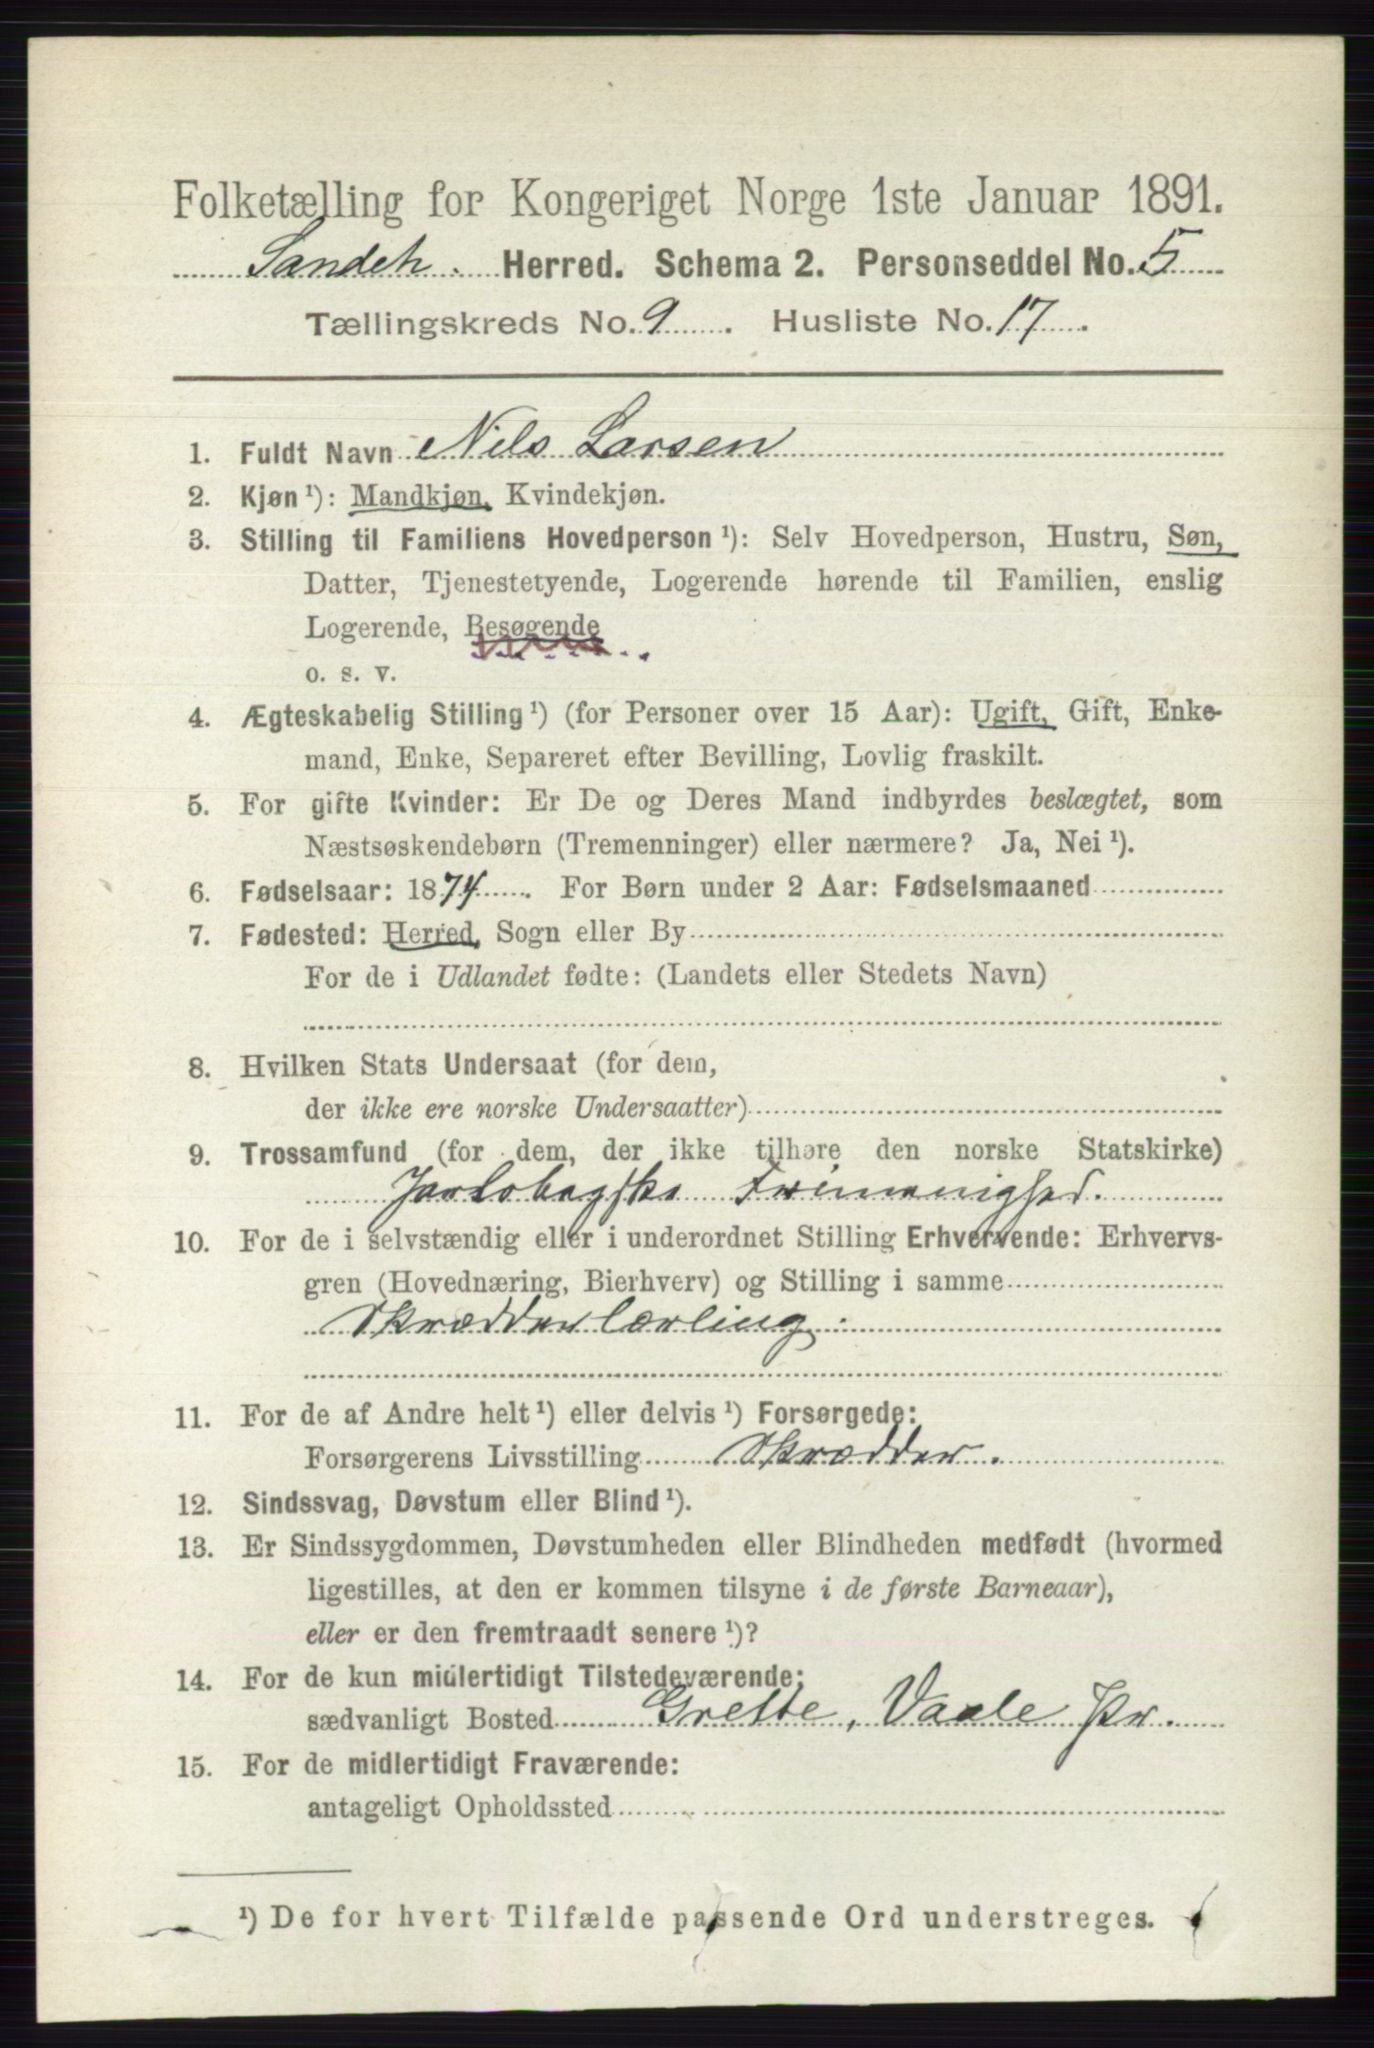 Folketælling for Kongeriget Norge 1ste Januar 1891.
Sandeh. Herred. Schema 2. Personseddel No. 5
Tællingskreds No. 9. Husliste No. 17.
1. Fuldt Navn Nils Larsen
2. Kjøn¹): Mandkjøn, Kvindekjøn.
3. Stilling til Familiens Hovedperson¹): Selv Hovedperson, Hustru, Søn,
Datter, Tjenestetyende, Logerende hørende til Familien, enslig
Logerende, Besøgende
o. s. v.
4. Ægteskabelig Stilling¹) (for Personer over 15 Aar): Ugift, Gift, Enke-
mand, Enke, Separeret efter Bevilling, Lovlig fraskilt.
5. For gifte Kvinder: Er De og Deres Mand indbyrdes beslægtet, som
Næstsøskendebørn (Tremenninger) eller nærmere? Ja, Nei¹).
6. Fødselsaar: 1874. For Børn under 2 Aar: Fødselsmaaned
7. Fødested: Herred, Sogn eller By
For de i Udlandet fødte: (Landets eller Stedets Navn)
8. Hvilken Stats Undersaat (for dem,
der ikke ere norske Undersaatter)
9. Trossamfund (for dem, der ikke tilhøre den norske Statskirke)
Jarlsbergske Frimenighed.
10. For de i selvstændig eller i underordnet Stilling Erhvervende: Erhvervs-
gren (Hovednæring, Bierhverv) og Stilling i samme
Skrædderlærling.
11. For de af Andre helt¹) eller delvis¹) Forsørgede:
Forsørgerens Livsstilling Skrædder.
12. Sindssvag, Døvstum eller Blind¹).
13. Er Sindssygdommen, Døvstumheden eller Blindheden medfødt (hvormed
ligestilles, at den er kommen tilsyne i de første Barneaar),
eller er den fremtraadt senere¹)?
14. For de kun midlertidigt Tilstedeværende:
sædvanligt Bosted Grette, Vaale Pr.
15. For de midlertidigt Fraværende:
antageligt Opholdssted
¹) De for hvert Tilfælde passende Ord understreges.